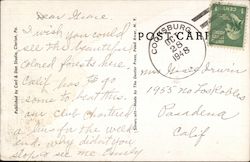 Dear Grace
I wish you could
see the beautiful
colored forests here
Calif. has to go
some to beat this.
our club chartered
a bus for the week
end. why didn't you
stop & see me
Published by Carl & Don Studio, Clarion, Pa.
POST CARD
COOKSBURG
OCT
25
1948
PA.
Miss Grace Irwin
1955 No
Pasadena
Calif